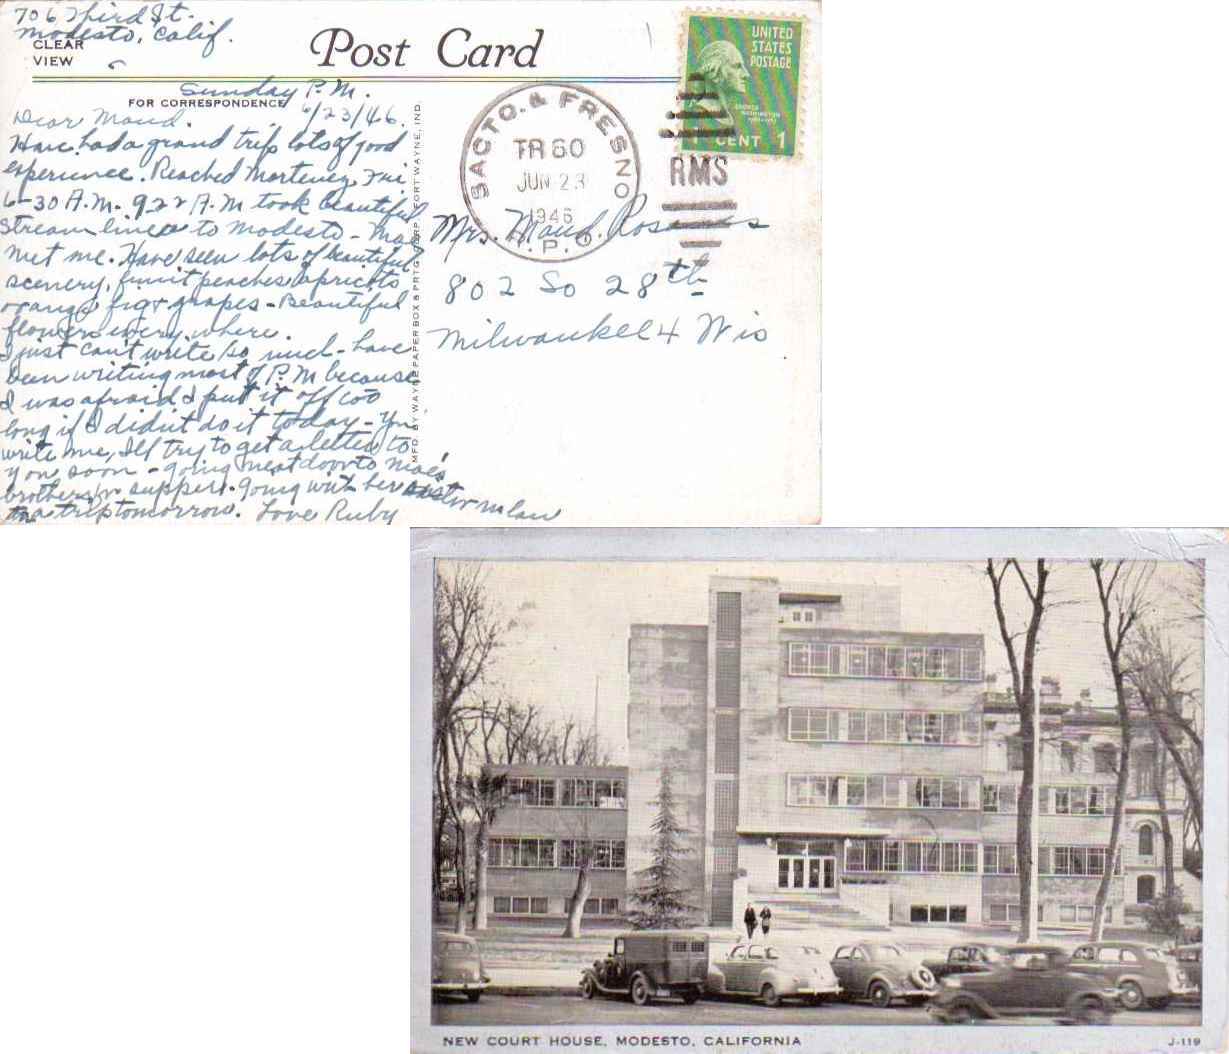 706 Third St.
Modesto, Calif.
CLEAR
VIEW
Post Card
Sunday P.M.
FOR CORRESPONDENCE
6/23/46.
Dear Maud.
Have had a grand trip lots of good
experience. Reached Fri
6-30 A.M. 922 A.M took beautiful
streamliner to Modesto - Mae
met me. Have seen lots of beautiful
scenery, fruit peaches apricots
orange figs grapes - Beautiful
flowers every where.
I just can't write so much - have
been writing most of P.M because
I was afraid I put it off too
long if I didn't do it today - You
write me, I'll try to get a letter to
you soon - going next door to Mae's
brothers for supper. going with her sister in law
on a trip tomorrow. Love Ruby
MFD. BY WAYNE PAPER BOX & PRTG. CORP., FORT WAYNE, IND.
SACTO. & FRESNO
TR 60
JUN 23
1946
R.P.O.
RMS
UNITED
STATES
POSTAGE
GEORGE
WASHINGTON
1 CENT 1
Mrs. Maud
802 So 28th
Milwaukee 4 Wis
NEW COURT HOUSE, MODESTO, CALIFORNIA
J-119